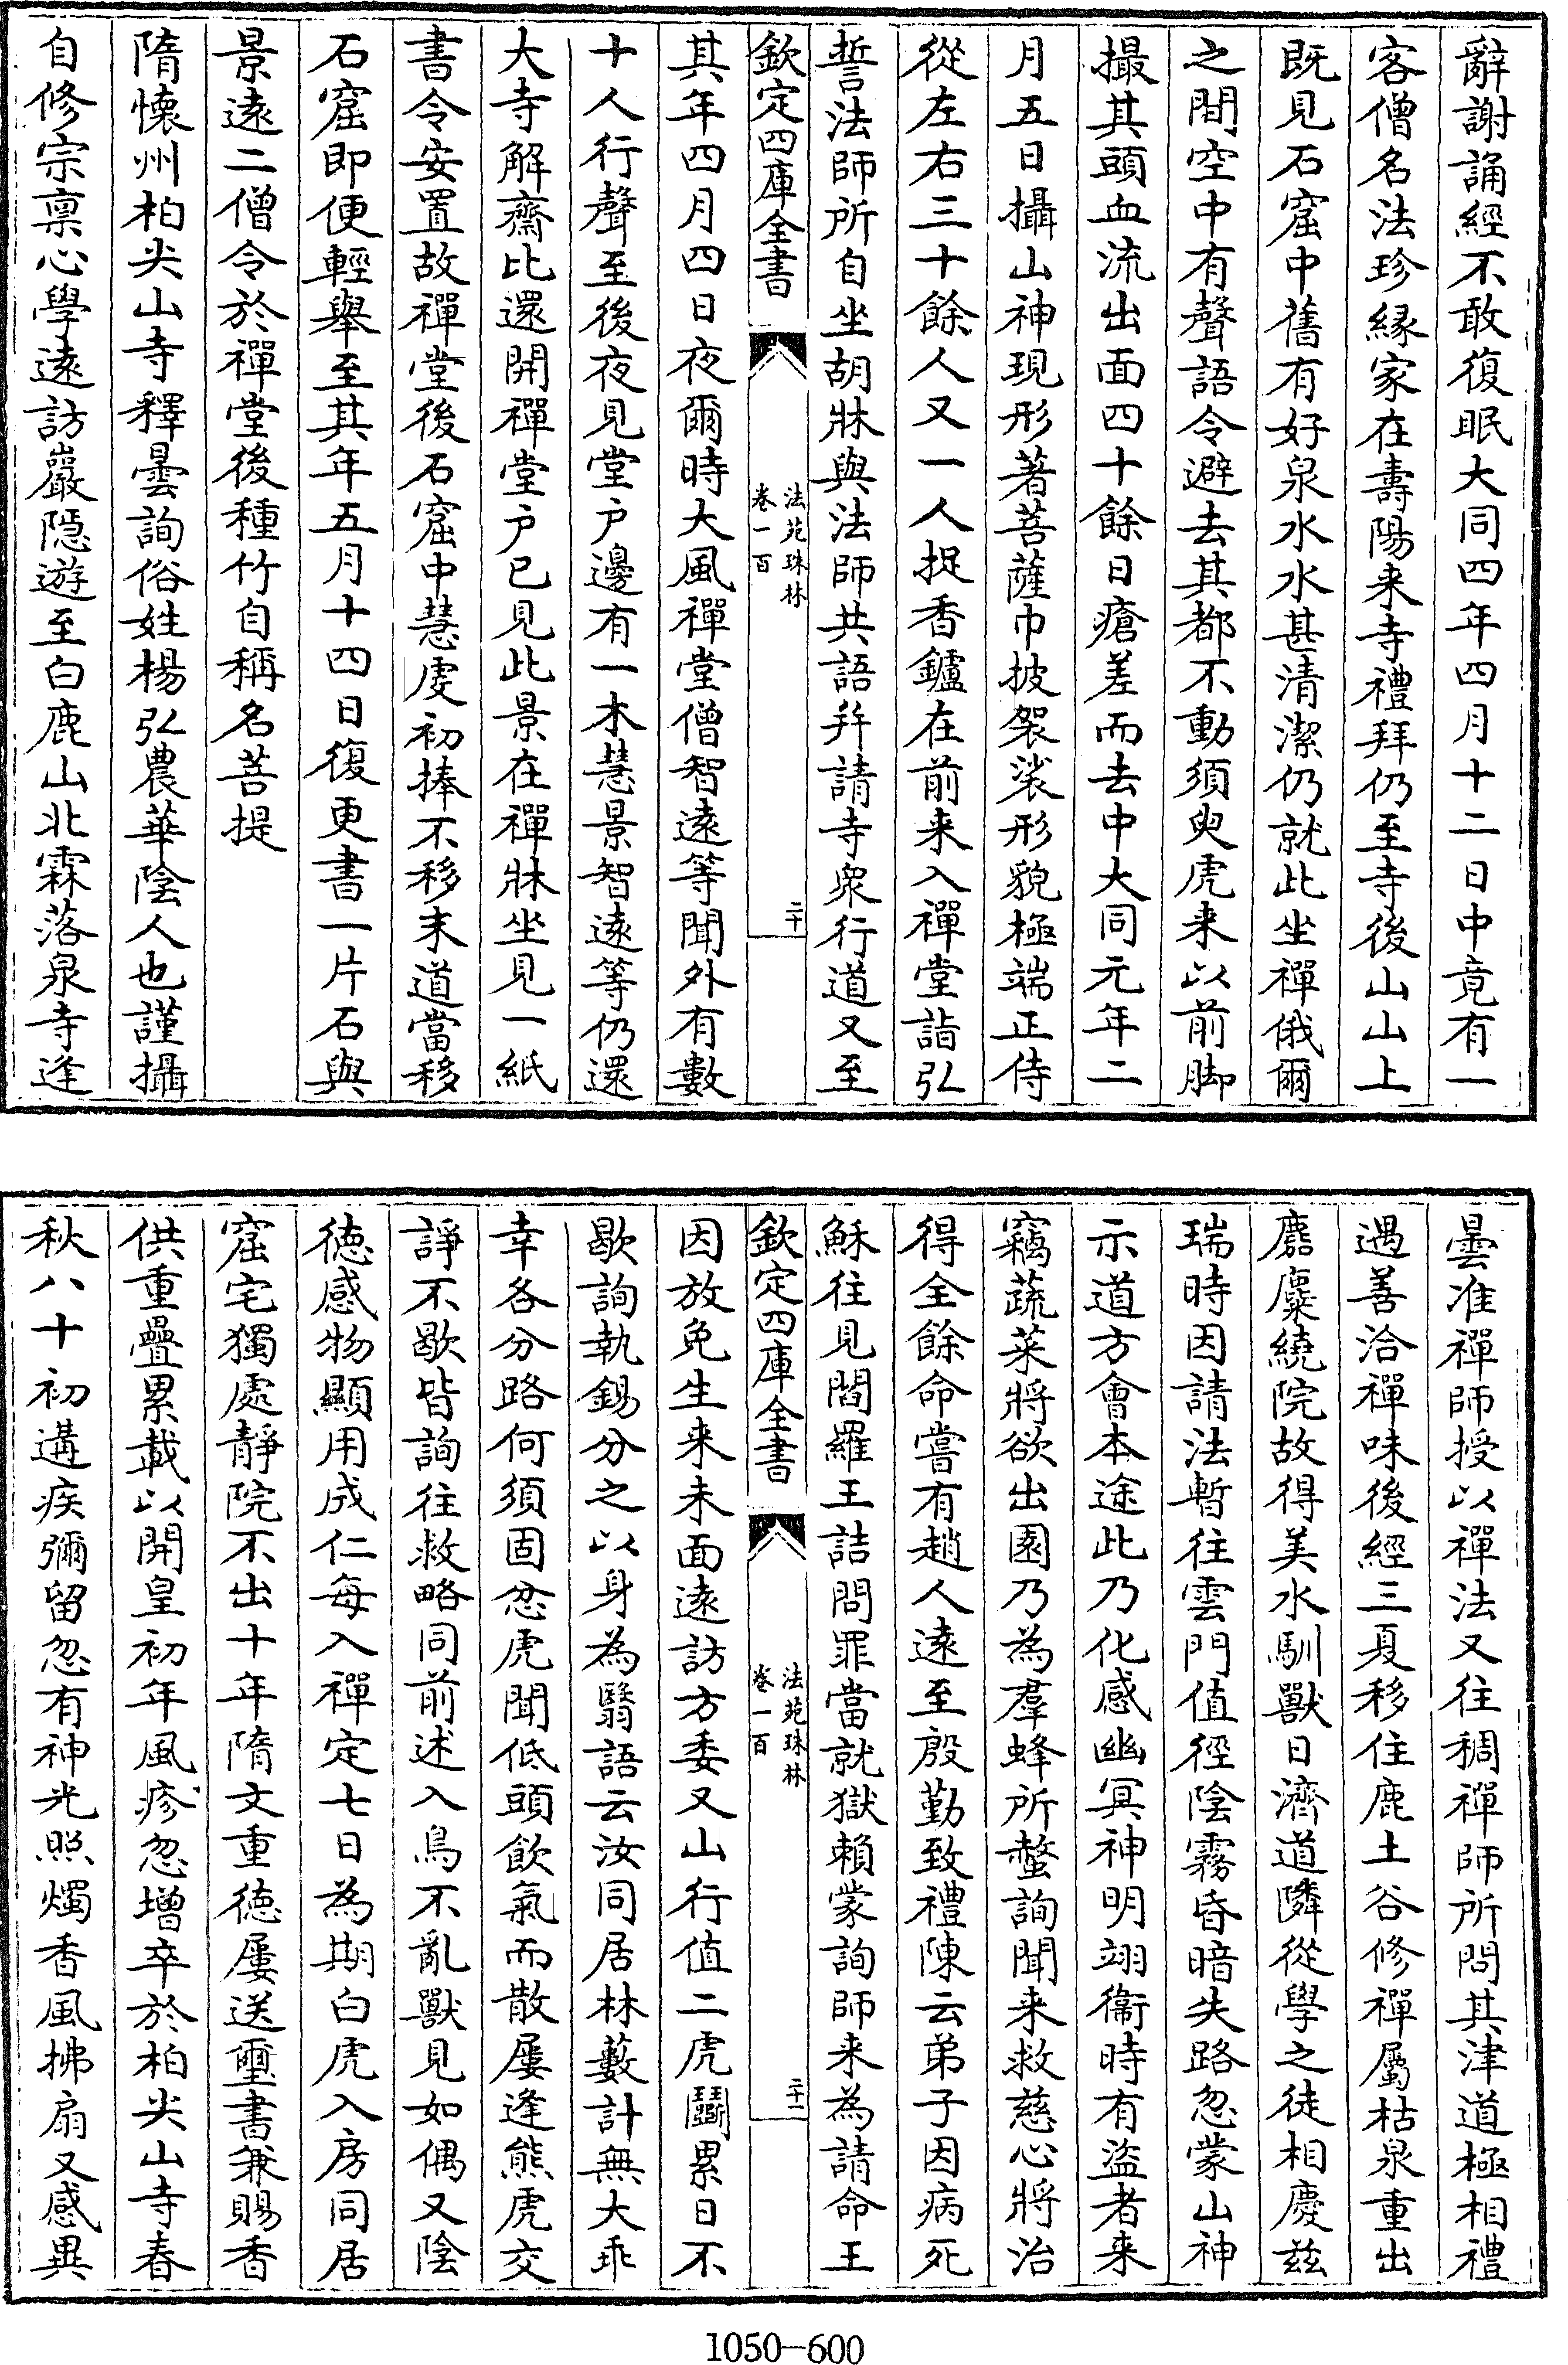 辭謝誦經不敢復眠大同四年四月十二日中竟有一
客僧名法珍緣家在壽陽来寺禮拜仍至寺後山山上
既見石窟中舊有好泉水水甚清潔仍就此坐禪俄爾
之間空中有聲語令避去其都不動須臾虎来以前脚
撮其頭血流出面四十餘日瘡差而去中大同元年二
月五日攝山神現形著菩薩巾披袈裟形貌極端正侍
從左右三十餘人又一人捉香鑪在前来入禪堂詣弘
誓法師所自坐胡牀與法師共語并請寺衆行道又至
欽定四庫全書
法苑珠林
卷一百
二十
其年四月四日夜爾時大風禪堂僧智遠等聞外有數
十人行聲至後夜見堂户邊有一木慧景智遠等仍還
大寺解齋比還開禪堂户已見此景在禪牀坐見一紙
書令安置故禪堂後石窟中慧虔初捧不移末道當移
石窟即便輕舉至其年五月十四日復更書一片石與
景遠二僧令於禪堂後種竹自稱名菩提
隋懷州柏尖山寺釋曇詢俗姓楊弘農華陰人也謹攝
自修宗禀心學遠訪巖隱遊至白鹿山北霖落泉寺逢
曇准禪師授以禪法又往稠禪師所問其津道極相禮
遇善洽禪味後經三夏移住鹿土谷修禪屬枯泉重出
麏麋繞院故得美水馴獸日濟道隣從學之徒相慶兹
瑞時因請法暫往雲門值徑陰霧昏暗失路忽蒙山神
示道方會本途此乃化感幽冥神明翊衞時有盜者来
竊蔬菜將欲出園乃為羣蜂所螫詢聞来救慈心將治
得全餘命嘗有趙人遠至殷勤致禮陳云弟子因病死
穌往見閻羅王詰問罪當就獄賴蒙詢師来為請命王
欽定四庫全書
法苑珠林
卷一百
二十一
因放免生来未面遠訪方委又山行值二虎鬬累日不
歇詢執錫分之以身為翳語云汝同居林藪計無大乖
幸各分路何須固忿虎聞低頭飲氣而散屢逢熊虎交
諍不歇皆詢往救略同前述入鳥不亂獸見如偶又陰
德感物顯用成仁每入禪定七日為期白虎入房同居
窟宅獨處靜院不出十年隋文重德屢送璽書兼賜香
供重疊累載以開皇初年風疹忽增卒於柏尖山寺春
秋八十初遘疾彌留忽有神光照燭香風拂扇又感異
1050-600